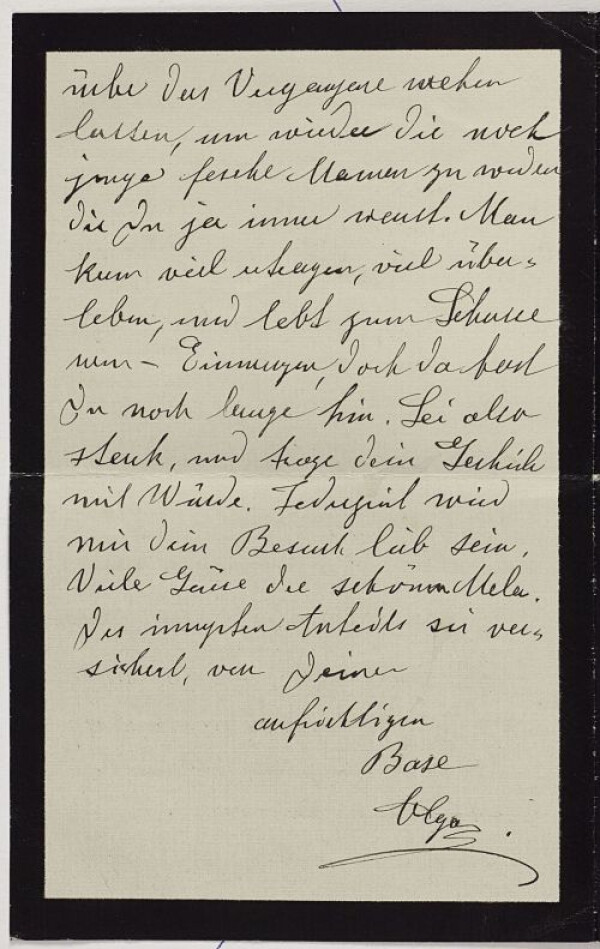 über das Vergangene wehen
lassen, um wieder die noch
junge fesche Mama zu werden
die Du ja immer warst. Man
kann viel ertragen, viel über-
leben, und lebt zum Schlusse
von – Erinnerungen, doch da hast
Du noch lange hin. Sei also
stark, und trage dein Geschick
mit Würde. Jederzeit wird
mir dein Besuch lieb sein.
Viele Grüße die schönen Mela.
Des innigsten Anteils sei ver-
sichert, von Deiner
aufrichtigen
Base
Olga